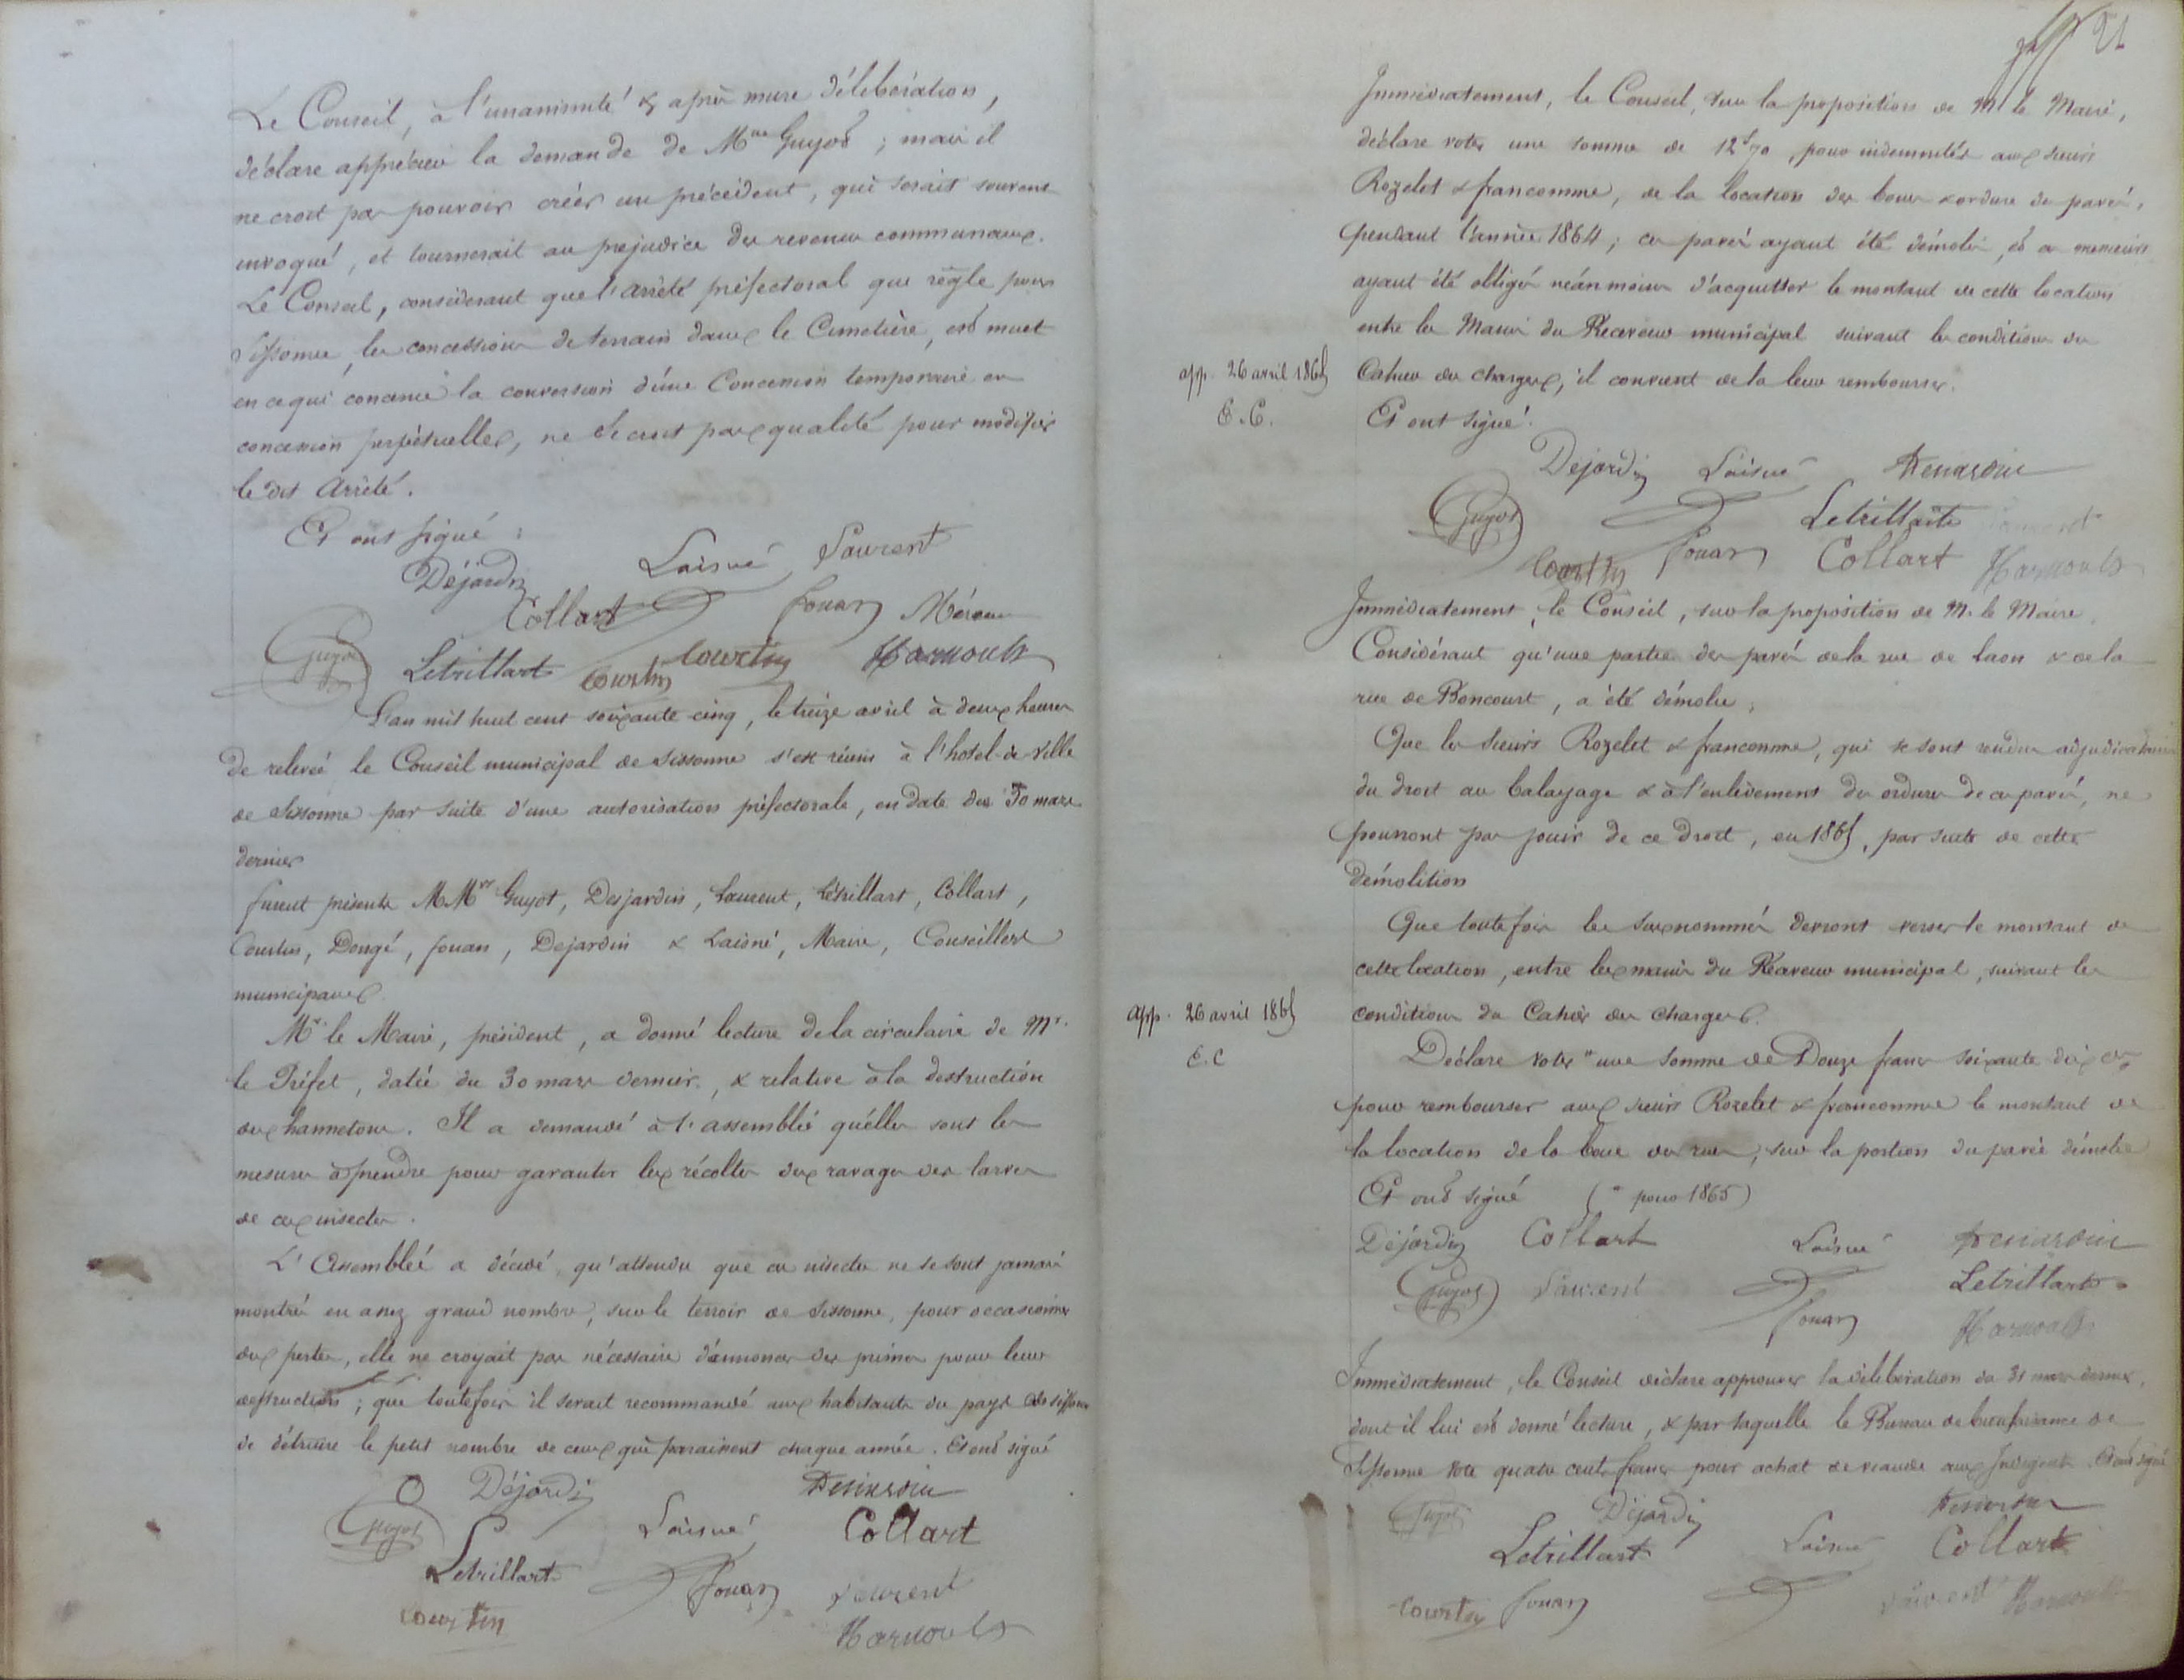 Le Conseil, à l'unanimité & après mure délibération,
déclare apprécier la demande de Mme Guyot ; mais il
ne croit pas pouvoir créer un précédent, qui serait souvent
invoqué, et tournerait au préjudice des revenus communaux.
Le Conseil, considerant que l'arrêté préfectoral que règle pour
Sissonne, les concessions de terrain dans le Cimetière, est muet
en ce qui concerne la conversion d'une Concession temporaire en
concession perpétuelle, ne se croit pas qualité pour modifier
le dit Arrêté.
Et ont signé :
Déjardin Laisné Laurent
Collart Jouan
Guyot Letrillart Courtin Courtin Harnoult
L'an mil huit cent soixante cinq, le treize avril à deux heures
de relevée le Conseil municipal de Sissonne s'est réuni à l'hotel de Ville
de Sissonne par suite d'une autorisation préfectorale, en date du 30 mars
dernier
furent présents MMrs Guyot, Desjardin, Laurent, Létrillart, Collart,
Courtin, Dougé, Jouan, Dejardin & Laisné, Maire, Conseillers
municipaux.
Mr. le Maire, président, a donné lecture de la circulaire de Mr.
le Préfet, datée du 30 mars dernier, & relative à la destruction
des hannetons. Il a demandé à l'assemblée quélles sont les
mesures à prendre pour garantir les récoltes des ravages des larves
de ces insectes.
L'Assemblée a décidé, qu'attendu que ces insectes ne se sont jamais
montrés en assez grand nombre, sur le terroir de Sissonne, pour occasionner
des pertes, elle ne croyait pas nécessaire d'annoncer des primes pour leur
destruction ; que toutefois il serait recommandé aux habitants du pays de Sissonne
de détruire le petit nombre de ceux qui paraissent chaque année. Et ont signé
Déjardin
Guyot Laisné Collart
Letrillart Jouan Laurent
Courtin Harnoult
21
Immédiatement, le Conseil, sur la proposition de M le Maire,
déclare voter une somme de 12f70, pour indemnités aux sieurs
Rozelet & francomme, de la location des boues & ordures de pavés,
pendant l'année 1864 ; ces pavés ayant été démolis, et ces messieurs
ayant été obligés néanmoins d'acquitter le montant de cette location
entre les Mains du Receveur municipal suivant les conditions du
Cahier des charges, il convient de la leur rembourser.
app. 26 avril 1865
E.C.
Et ont signé.
Dejardin Laisné
Guyot Letrillart Laurent
Courtin Jouan Collart Harnoult
Immédiatement, le Conseil, sur la proposition de M. le Maire,
Considérant qu'une partie des pavés de la rue de Laon & de la
rue de Boncourt, a été démolie,
Que les sieurs Rozelet & francomme, qui se sont rendus adjudicataires
du droit au balayage & à l'enlèvement des ordures de ces pavés, ne
pourront pas jouir de ce droit, en 1865, par suite de cette
démolition
Que toutefois les susnommés devront verser le montant de
cette location, entre les mains du Receveur municipal, suivant les
conditions du Cahier des charges.
app. 26 avril 1865
E.C
Déclare voter " une somme de Douze francs soixante dix cs,
pour rembourser aux sieurs Rozelet & francomme le montant de
la location de la boue des rues, sur la portion du pavé démolie
Et ont signé (" pour 1865)
Déjardin Collart Laisné
Guyot Laurent Letrillart
Jouan Harnoult
Immédiatement, le Conseil déclare approuver la délibération du 31 mars dernier,
dont il lui est donné lecture, & par laquelle le Bureau de bienfaisance de
Sissonne vote quatre cents francs pour achat de viande aux Indigents. Et ont signé
Guyot Déjardin
Letrillart Laisné Collart
Courtin Jouan Laurent Harnoult